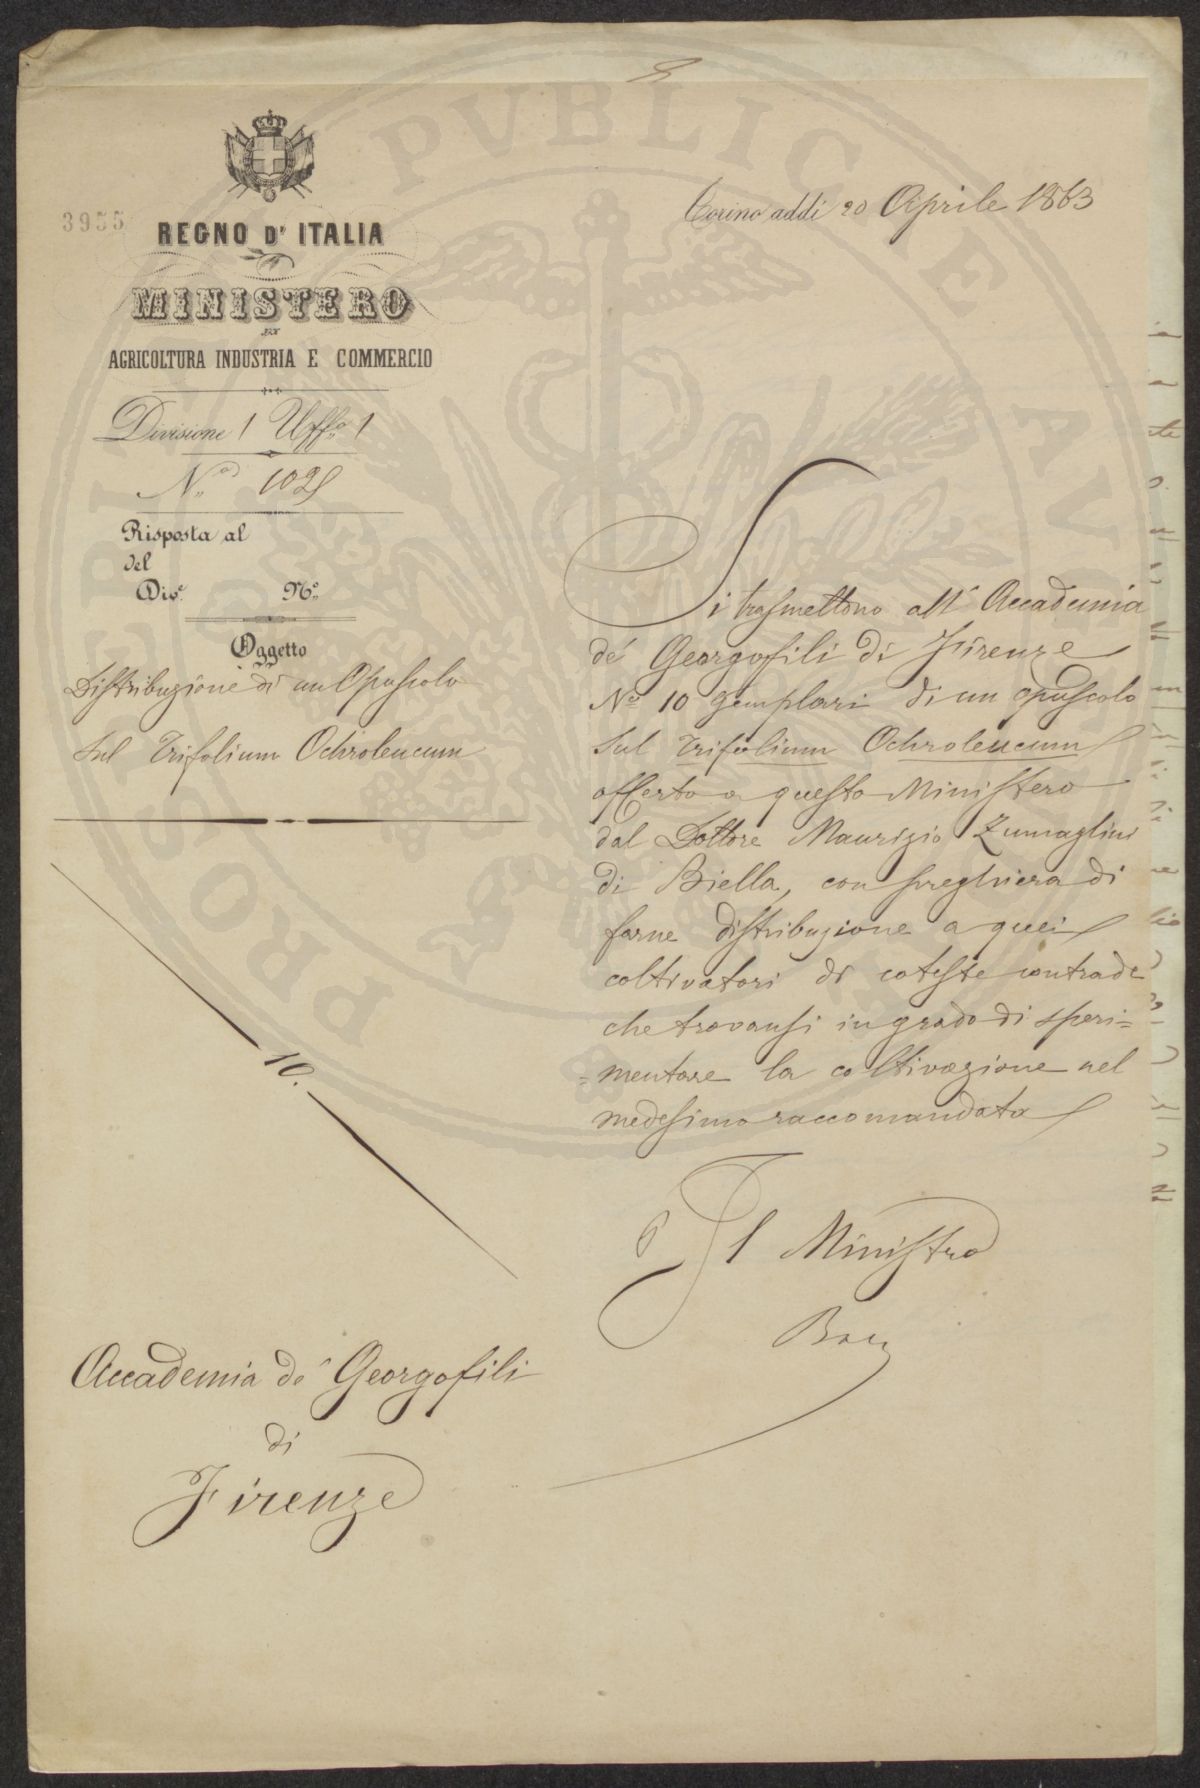 3955
REGNO D' ITALIA
MINISTERO
DI
AGRICOLTURA INDUSTRIA E COMMERCIO
Divisione 1 Uffo. 1
N.o 1029
Risposta al
del
Div.e No.
Oggetto
Distribuzione di un Opuscolo
sul Trifolium Ochroleucum
10.
Accademia de' Georgofili
di
Firenze
Torino addi 20 Aprile 1863
Si trasmettono all' Accademia
de' Georgofili di Firenze
No 10 esemplari di un opuscolo
sul Trifolium Ochroleucum
offerto a questo Ministero
dal Dottore Maurizio Zumaglini
di Biella, con preghiera di
farne distribuzione a quei
coltivatori di coteste contrade
che trovansi in grado di speri=
=mentare la coltivazione nel
medesimo raccomandata
Il Ministro
PROSPERITATI PVBLICAE AVGENDAE